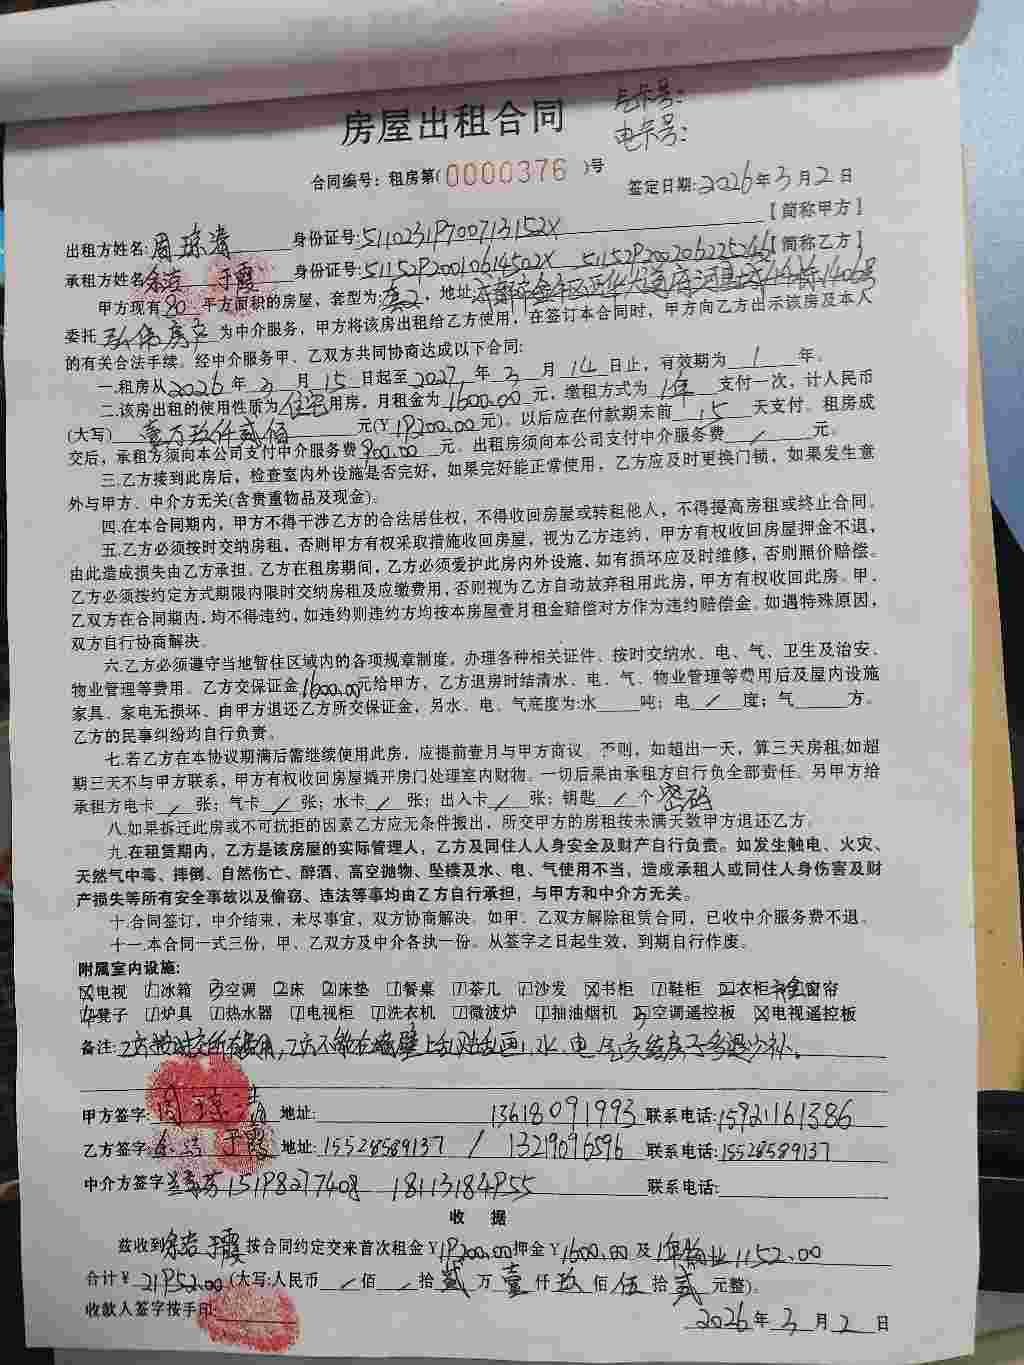 气卡号:
电卡号:
房屋出租合同
合同编号：租房第(0000376)号
签定日期:2026年3月2日
出租方姓名:周琼 身份证号:51102319700713152X【简称甲方】
承租方姓名 于霞 身份证号:51152920010614502X 【简称乙方】
甲方现有80平方面积的房屋，套型为:套2，地址:
委托弘伟房产为中介服务，甲方将该房出租给乙方使用，在签订本合同时，甲方向乙方出示该房及本人
的有关合法手续。经中介服务甲、乙双方共同协商达成以下合同:
一.租房从2026年3月15日起至2027年3月14日止，有效期为1年。
二.该房出租的使用性质为住宅用房，月租金为1600.00元，缴租方式为1年支付一次，计人民币
(大写)壹万玖仟贰佰元(￥19200.00元)。以后应在付款期未前15天支付。租房成
交后，承租方须向本公司支付中介服务费900.00元。出租房须向本公司支付中介服务费/元。
三.乙方接到此房后，检查室内外设施是否完好，如果完好能正常使用，乙方应及时更换门锁，如果发生意
外与甲方、中介方无关(含贵重物品及现金)。
四.在本合同期内，甲方不得干涉乙方的合法居住权，不得收回房屋或转租他人，不得提高房租或终止合同。
五.乙方必须按时交纳房租，否则甲方有权采取措施收回房屋，视为乙方违约，甲方有权收回房屋押金不退，
由此造成损失由乙方承担。乙方在租房期间，乙方必须爱护此房内外设施，如有损坏应及时维修，否则照价赔偿。
乙方必须按约定方式期限内限时交纳房租及应缴费用，否则视为乙方自动放弃租用此房，甲方有权收回此房。甲、
乙双方在合同期内，均不得违约，如违约则违约方均按本房屋壹月租金赔偿对方作为违约赔偿金。如遇特殊原因，
双方自行协商解决。
六.乙方必须遵守当地暂住区域内的各项规章制度，办理各种相关证件、按时交纳水、电、气、卫生及治安、
物业管理等费用。乙方交保证金1600.00元给甲方，乙方退房时结清水、电、气、物业管理等费用后及屋内设施
家具、家电无损坏、由甲方退还乙方所交保证金，另水、电、气底度为:水 吨；电/度；气 方。
乙方的民事纠纷均自行负责。
七.若乙方在本协议期满后需继续使用此房，应提前壹月与甲方商议。否则，如超出一天，算三天房租;如超
期三天不与甲方联系，甲方有权收回房屋撬开房门处理室内财物。一切后果由承租方自行负全部责任。另甲方给
承租方电卡/张；气卡/张；水卡/张；出入卡/张；钥匙/个 密码
八.如果拆迁此房或不可抗拒的因素乙方应无条件搬出，所交甲方的房租按未满天数甲方退还乙方。
九.在租赁期内，乙方是该房屋的实际管理人，乙方及同住人人身安全及财产自行负责。如发生触电、火灾、
天然气中毒、摔倒、自然伤亡、醉酒、高空抛物、坠楼及水、电、气使用不当，造成承租人或同住人身伤害及财
产损失等所有安全事故以及偷窃、违法等事均由乙方自行承担，与甲方和中介方无关。
十.合同签订，中介结束，未尽事宜，双方协商解决。如甲、乙双方解除租赁合同，已收中介服务费不退。
十一.本合同一式三份，甲、乙双方及中介各执一份。从签字之日起生效，到期自行作废。
附属室内设施:
电视 1冰箱 3空调 2床 2床垫 1餐桌 1茶几 1沙发 书柜 1鞋柜 2衣柜 窗帘
4凳子 1炉具 1热水器 1电视柜 1洗衣机 1微波炉 1抽油烟机 3空调遥控板 电视遥控板
备注: 乙方不能在墙壁上乱贴乱画,水、电、气 多退少补。
甲方签字:周琼 地址: 13618091993 联系电话:15921161386
乙方签字: 于霞 地址:15528589137 / 13219096596 联系电话:15528589137
中介方签字 15198277408 18113184955 联系电话:
收 据
兹收到 于霞 按合同约定交来首次租金￥19200.00押金￥1600.00及1年物业1152.00
合计￥21952.00(大写:人民币/佰/拾贰万壹仟玖佰伍拾贰元整)。
收款人签字按手印:
2026年3月2日